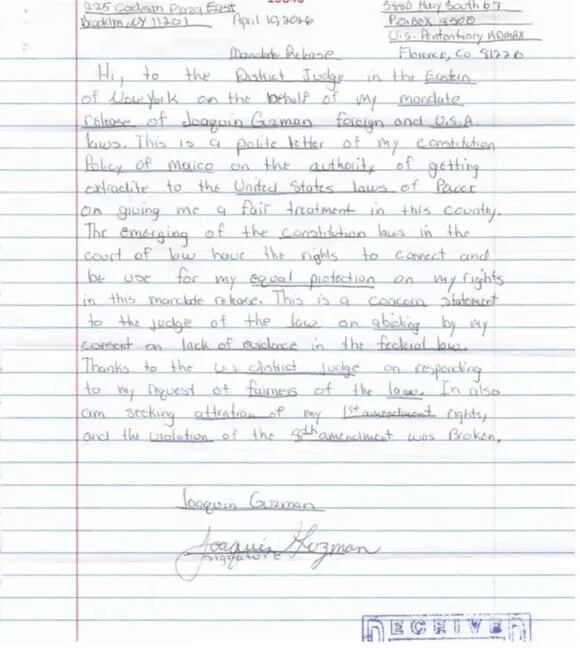 225 Cadman Plaza East
5880 Hwy South 67
Brooklyn, NY 11201
April 10, 2026
P.O. Box 8500
U.S. Penitentiary ADMAX
Mandate Release
Florence, Co 81226
Hi, to the District Judge in the Eastern
of New York on the behalf of my mandate
release of Joaquin Guzman foreign and U.S.A.
laws. This is a polite letter of my constitution
Policy of on the authority of getting
extradite to the United States laws of
on giving me a fair treatment in this county.
The emerging of the constitution laws in the
court of law have the rights to connect and
be use for my equal protection on my rights
in this mandate release. This is a concern statement
to the judge of the law on abiding by my
consent on lack of evidence in the federal law.
Thanks to the U.S. district Judge on responding
to my request of fairness of the law. In also
am seeking attention of my 1st amendment rights,
and the violation of the 8th amendment was Broken.
Joaquin Guzman
Joaquin Guzman
signature
RECEIVED